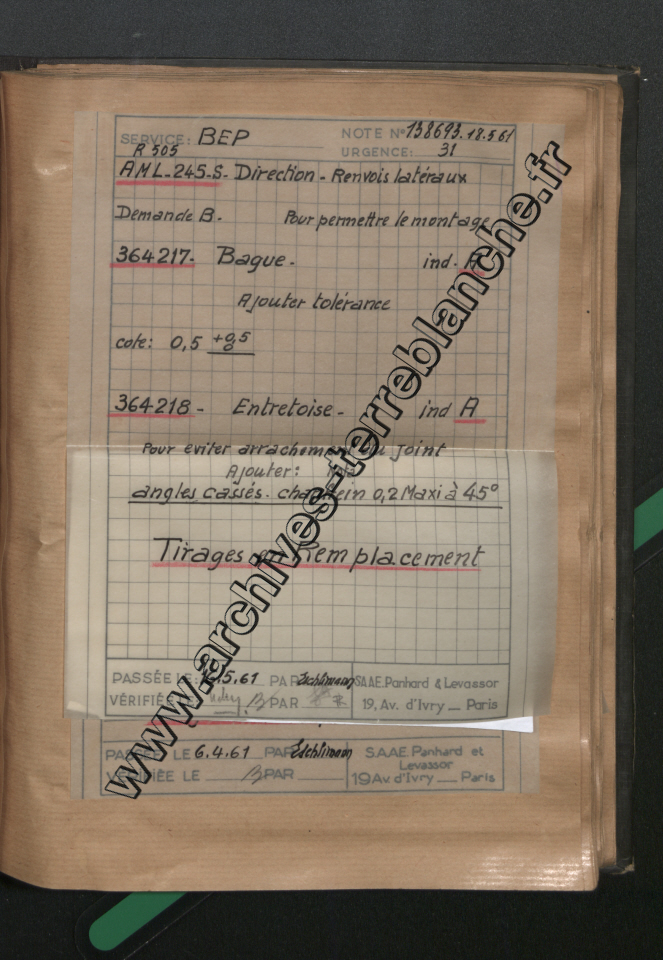 SERVICE: BEP NOTE N° 138693.18.5.61
R 505 URGENCE: 31
AML-245-S- Direction - Renvois latéraux
Demande B. Pour permettre le montage
364217- Bague - ind. A
Ajouter tolérance
cote: 0,5 +0,5
0
364218 - Entretoise - ind A
Pour eviter arrachement du Joint
Ajouter:
angles cassés. chanfrein 0,2 Maxi à 45°
Tirages en Remplacement
PASSÉE LE: .5.61 PAR S.A.A.E. Panhard & Levassor
VÉRIFIÉE LE PAR 19, Av. d'Ivry __ Paris
PASSÉE LE 6.4.61 PAR S.A.A.E Panhard et
Levassor
VÉRIFIÉE LE PAR 19 Av. d'Ivry __ Paris
www.archives-terreblanche.fr